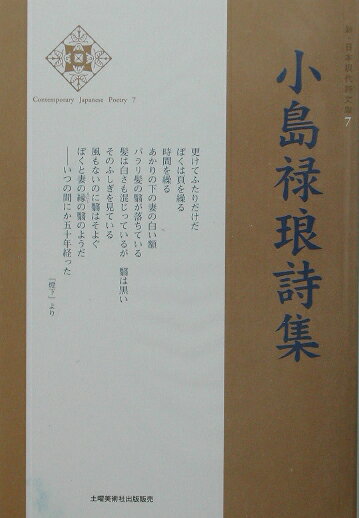 新・日本現代詩文庫 7
小島禄琅詩集
Contemporary Japanese Poetry 7
更けてふたりだけだ
ぼくは頁を繰る
時間を繰る
あかりの下の妻の白い額
パラリ髪の翳が落ちている
髪は白さも混じっているが 翳は黒い
そのふしぎを見ている
風もないのに翳はそよぐ
ぼくと妻の縁の翳のようだ
――いつの間にか五十年経った
『燈下』より
土曜美術社出版販売